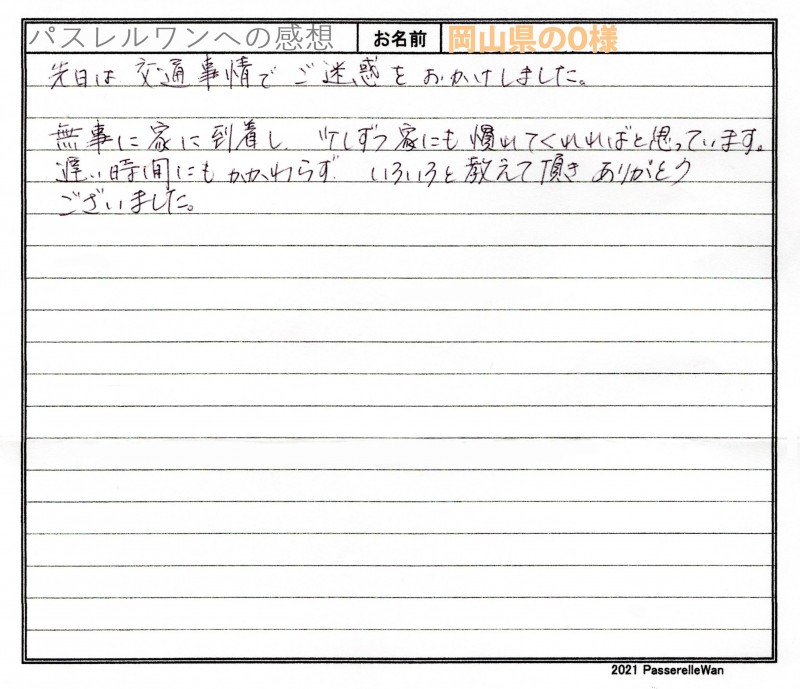 パスレルワンへの感想 お名前 岡山県のO様
先日は 交通事情で ご迷惑を おかけしました。
無事に家に到着し 少しずつ家にも慣れてくれればと思っています。
遅い時間にもかかわらず いろいろと教えて頂きありがとう
ございました。
2021 PasserelleWan